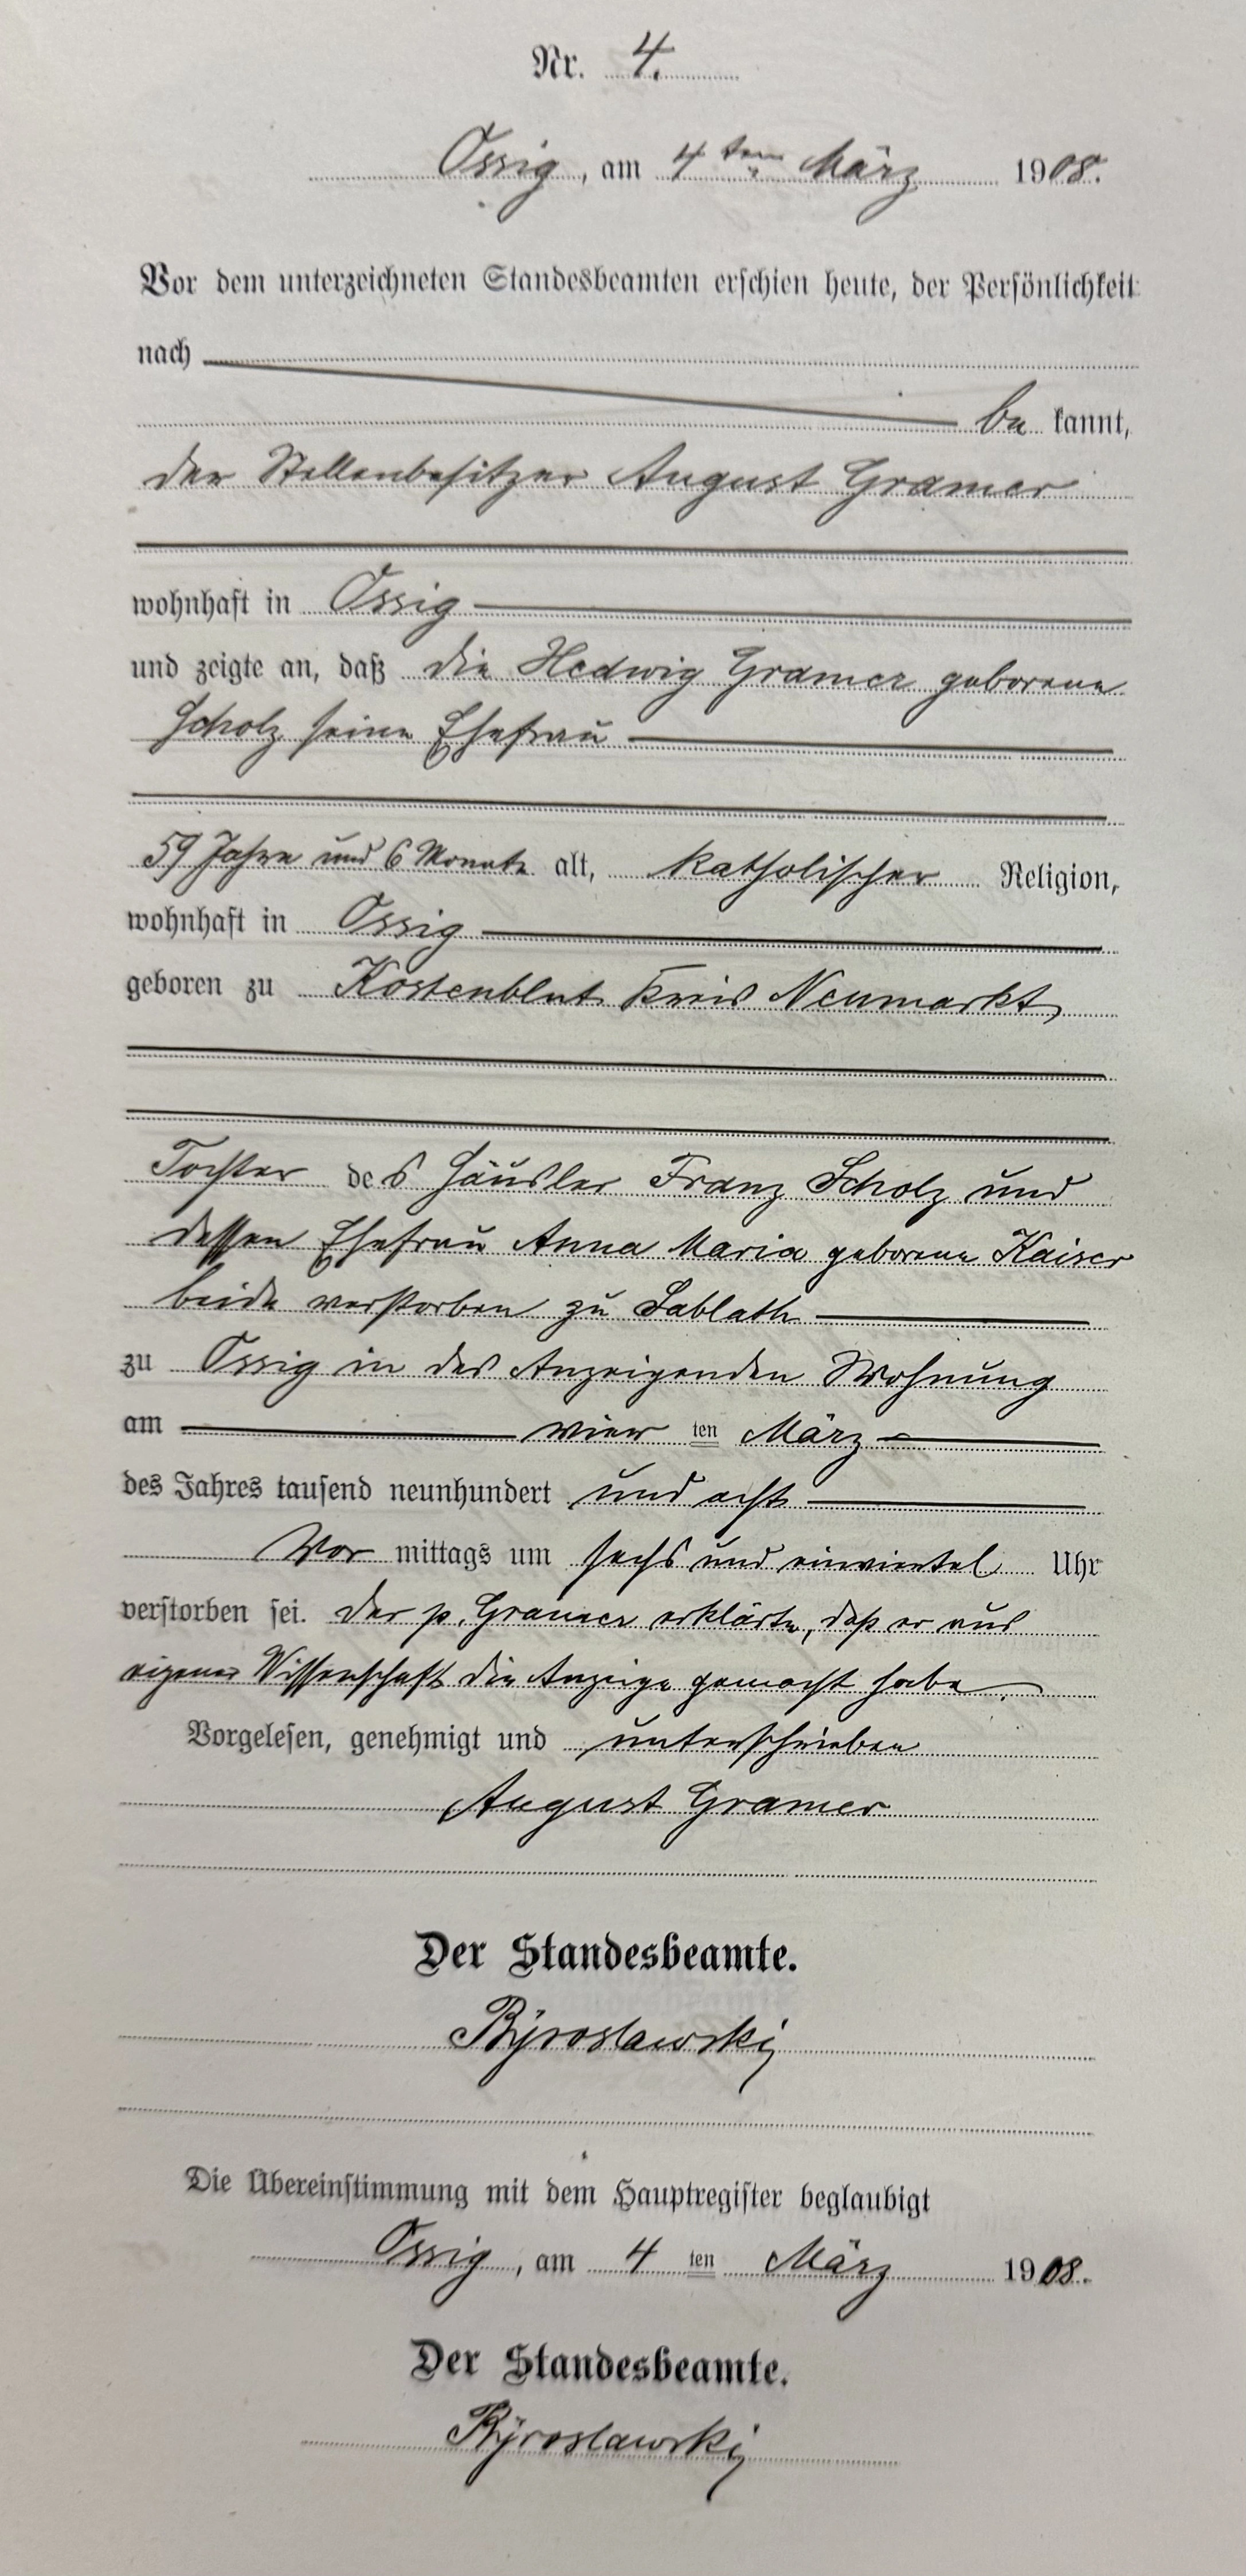 Nr. 4.
Ossig, am 4ten März 1908.
Vor dem unterzeichneten Standesbeamten erschien heute, der Persönlichkeit
nach
be kannt,
der Stellenbesitzer August Gramer
wohnhaft in Ossig
und zeigte an, daß die Hedwig Gramer geborene
Scholz seine Ehefrau
59 Jahre und 6 Monate alt, katholischer Religion,
wohnhaft in Ossig
geboren zu Kostenblut Kreis Neumarkt,
Tochter des Häusler Franz Scholz und
dessen Ehefrau Anna Maria geborene Kaiser
beide verstorben zu Sablath
zu Ossig in des Anzeigenden Wohnung
am vier ten März
des Jahres tausend neunhundert und acht
Vor mittags um sechs und einviertel Uhr
verstorben sei. Der p. Gramer erklärte, daß er aus
eigener Wissenschaft die Anzeige gemacht habe.
Vorgelesen, genehmigt und unterschrieben
August Gramer
Der Standesbeamte.
Die Übereinstimmung mit dem Hauptregister beglaubigt
Ossig, am 4 ten März 1908.
Der Standesbeamte.